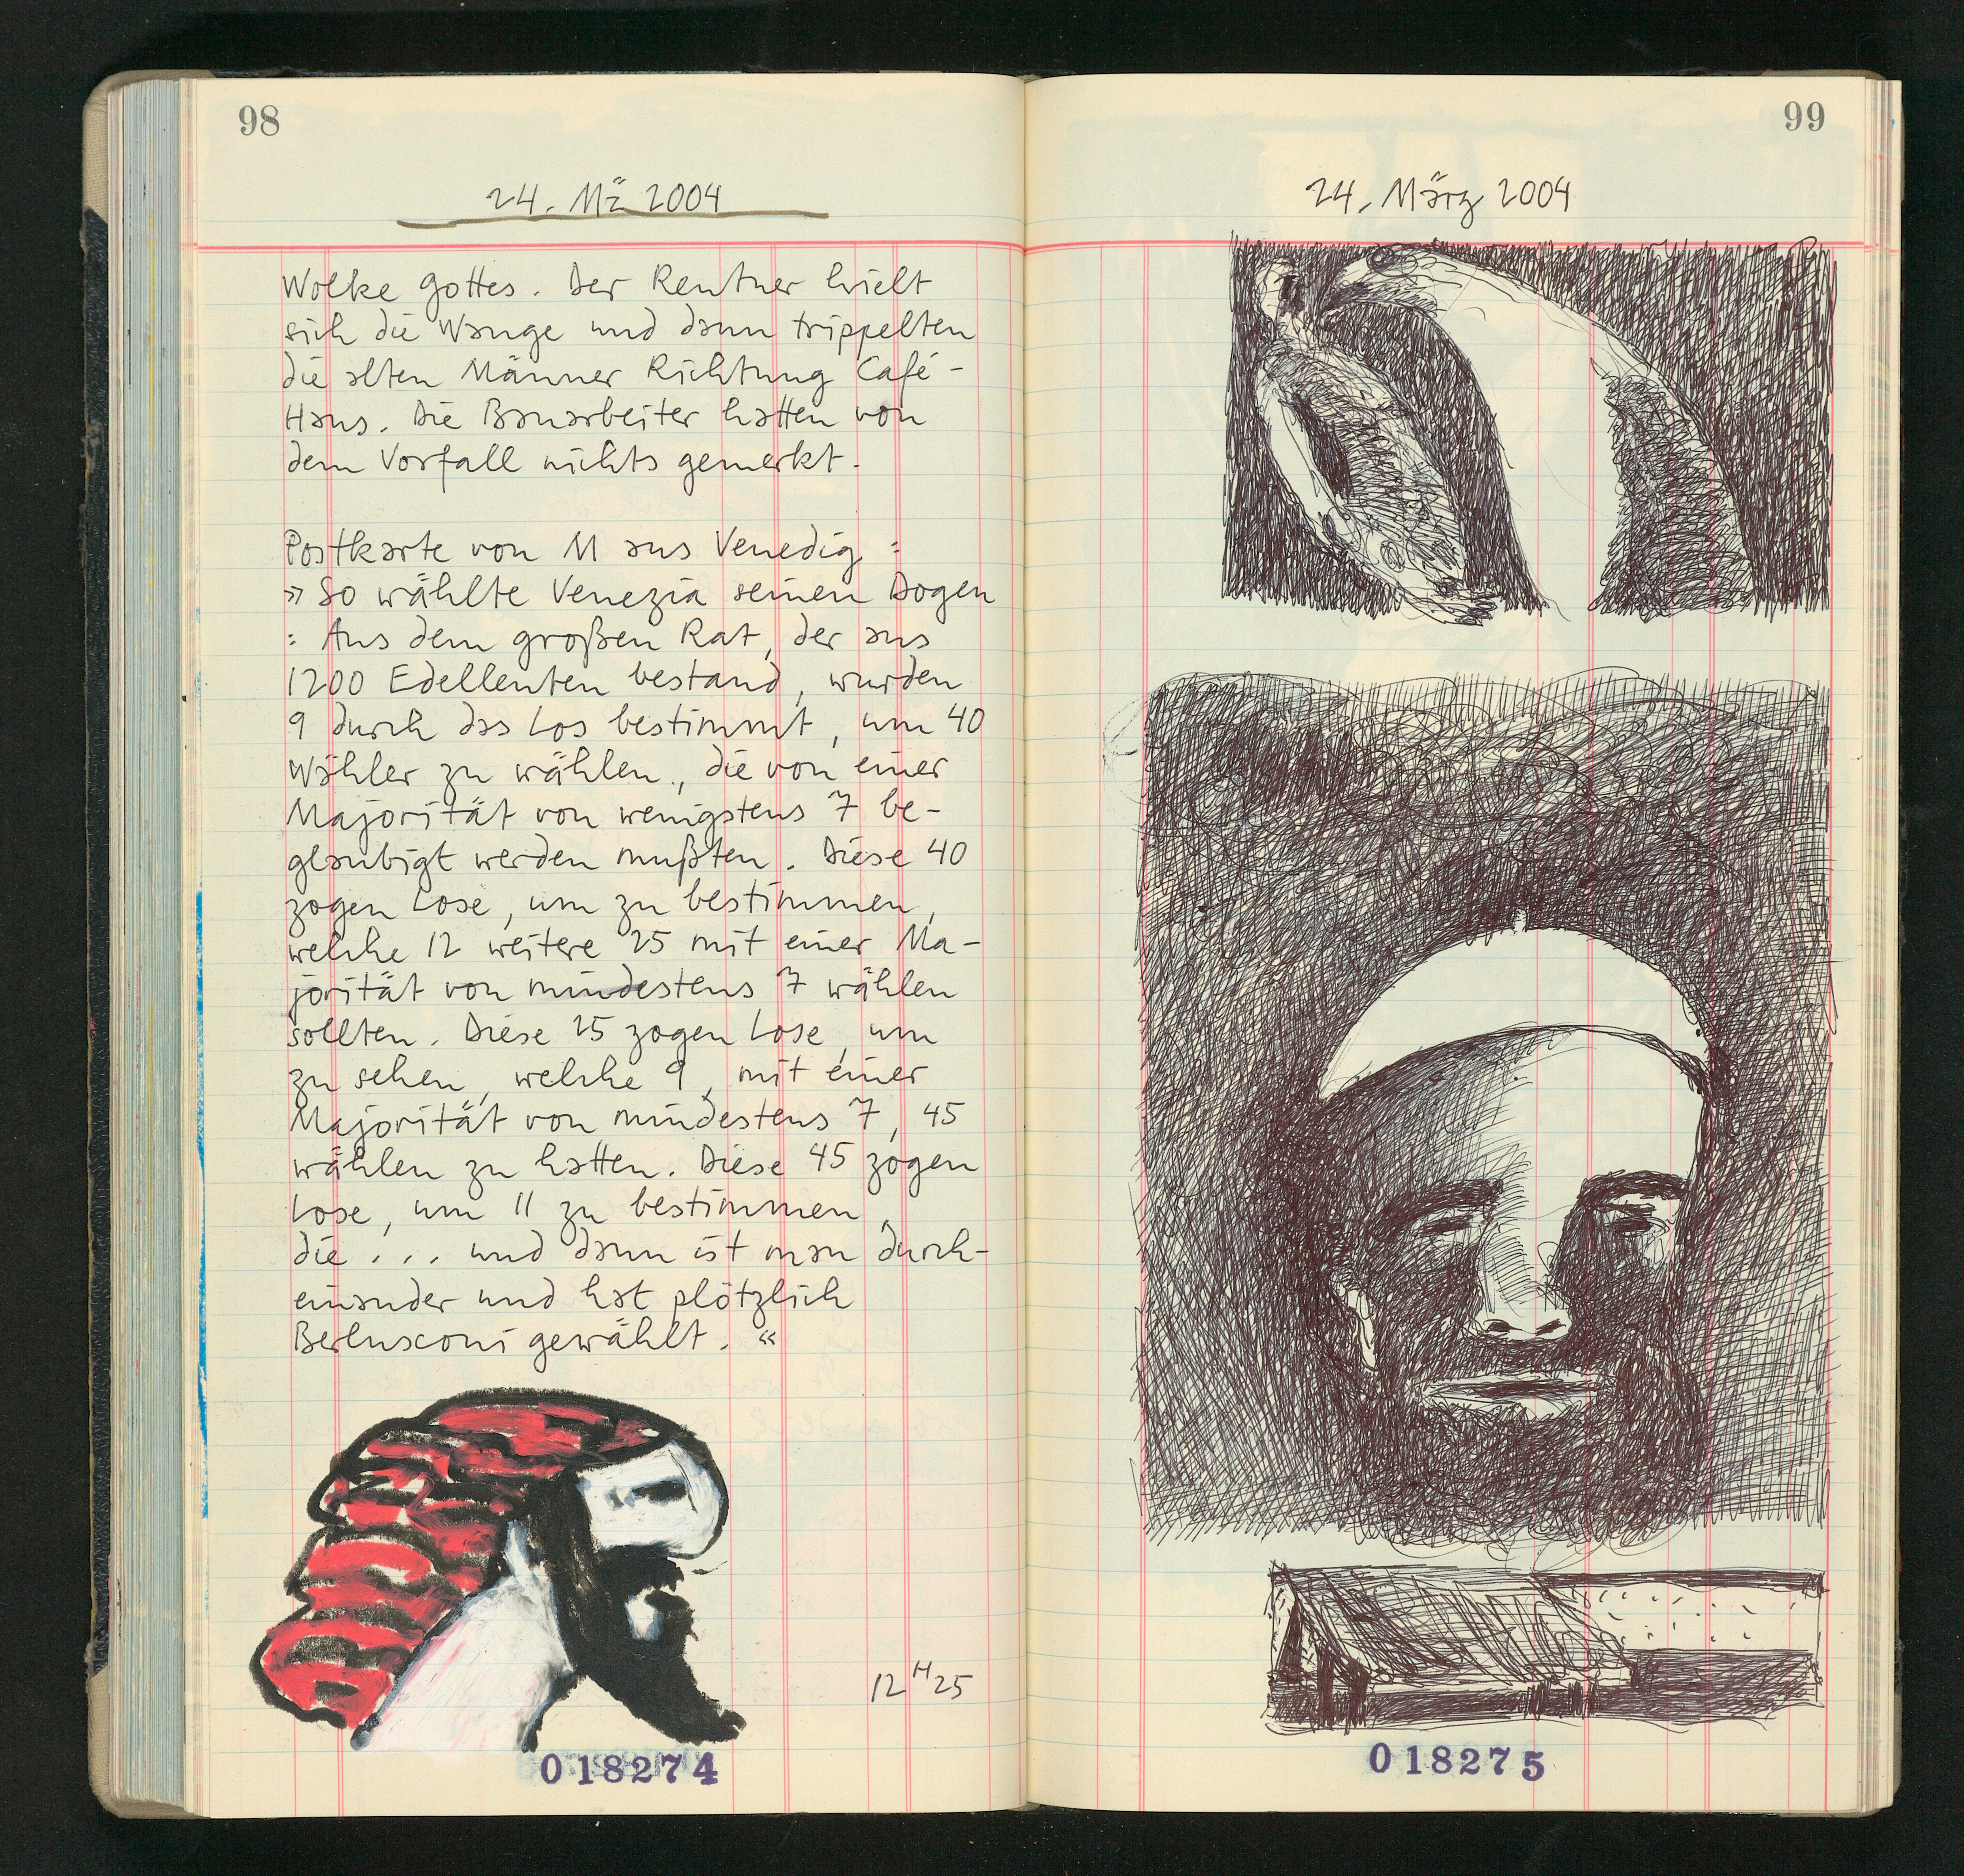 98
24. Mä 2004
Wolke Gottes. Der Rentner hielt
sich die Wange und dann trippelten
die alten Männer Richtung Café-
Haus. Die Bauarbeiter hatten von
dem Vorfall nichts gemerkt.
Postkarte von M aus Venedig :
» So wählte Venezia seinen Dogen
: Aus dem großen Rat, der aus
1200 Edelleuten bestand, wurden
9 durch das Los bestimmt, um 40
Wähler zu wählen, die von einer
Majorität von wenigstens 7 be-
glaubigt werden mußten. Diese 40
zogen Lose, um zu bestimmen,
welche 12 weitere 25 mit einer Ma-
jorität von mindestens 7 wählen
sollten. Diese 25 zogen Lose, um
zu sehen, welche 9, mit einer
Majorität von mindestens 7, 45
wählen zu hatten. Diese 45 zogen
Lose, um 11 zu bestimmen,
die ... und dann ist man durch-
einander und hat plötzlich
Berlusconi gewählt. «
12 H 25
018274
99
24. März 2004
018275